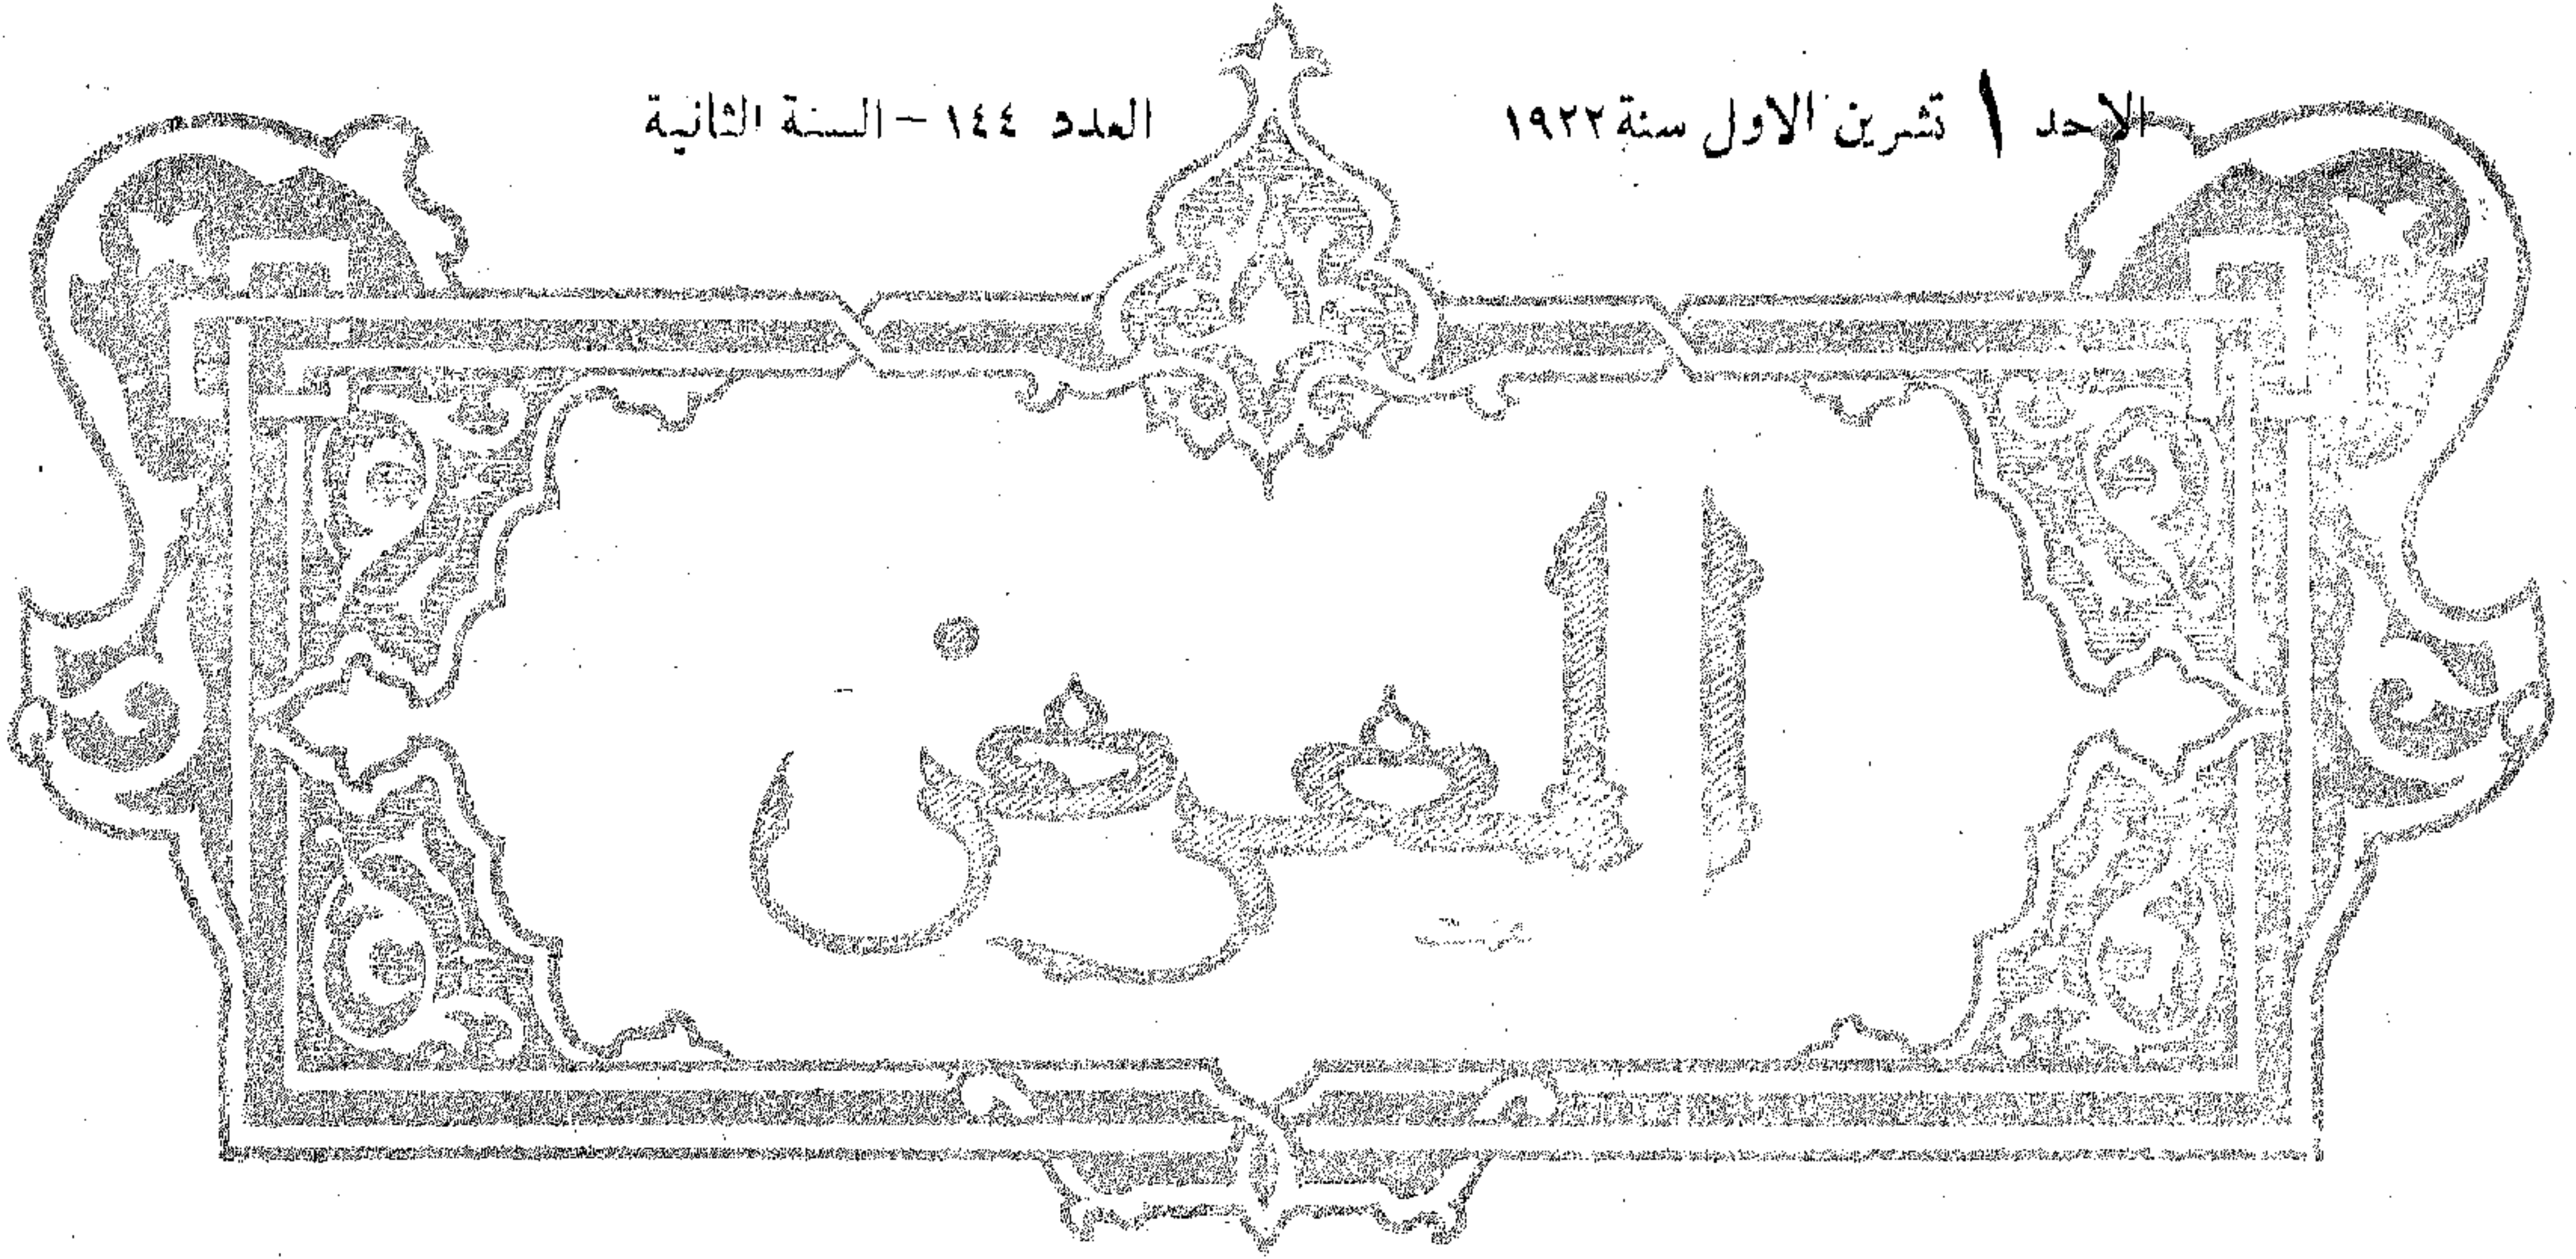 الاحد ١ تشرين الاول سنة ١٩٢٢ العدد ١٤٤ – السنة الثانية
المعرض